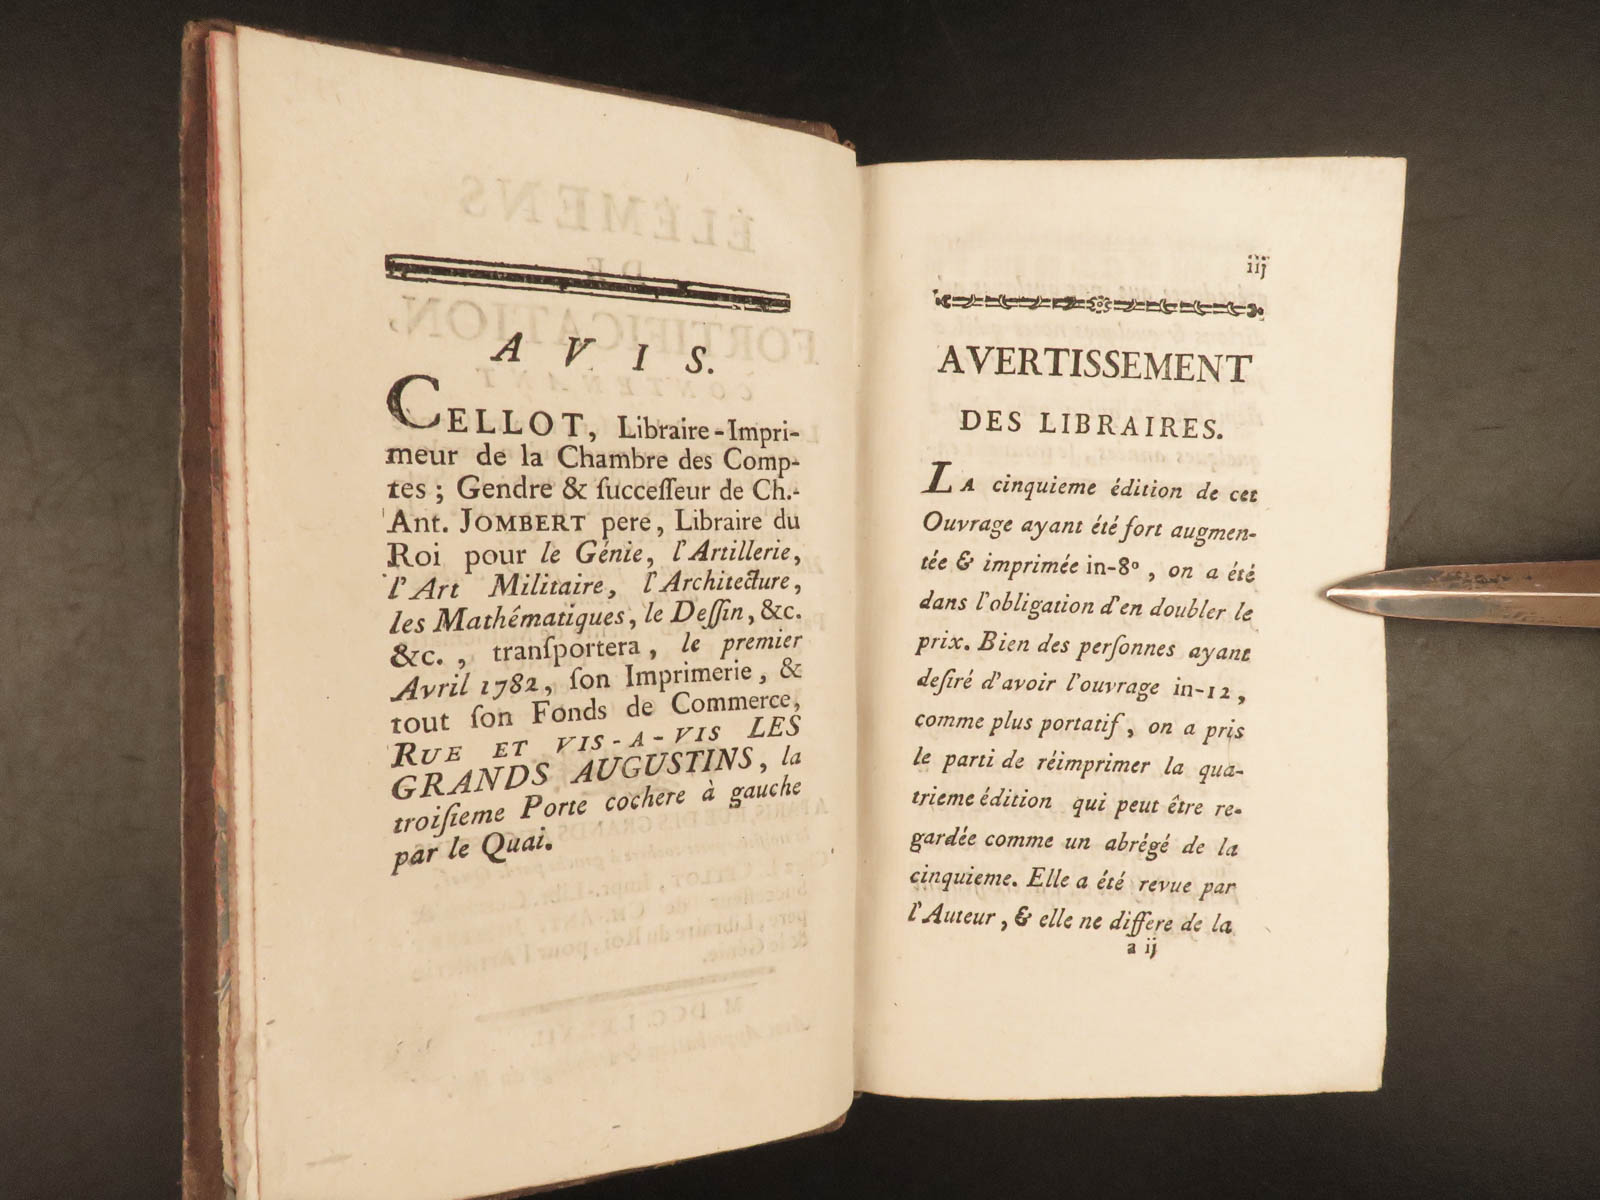 AVIS.
CELLOT, Libraire-Impri-
meur de la Chambre des Comp-
tes ; Gendre & ſucceſſeur de Ch.-
Ant. JOMBERT pere, Libraire du
Roi pour le Génie, l'Artillerie,
l'Art Militaire, l'Architecture,
les Mathématiques, le Deſſin, &c.
&c., tranſportera, le premier
Avril 1782, ſon Imprimerie, &
tout ſon Fonds de Commerce,
RUE ET VIS-A-VIS LES
GRANDS AUGUSTINS, la
troiſieme Porte cochere à gauche
par le Quai.
iij
AVERTISSEMENT
DES LIBRAIRES.
LA cinquieme édition de cet
Ouvrage ayant été fort augmen-
tée & imprimée in-8°, on a été
dans l'obligation d'en doubler le
prix. Bien des perſonnes ayant
deſiré d'avoir l'ouvrage in-12,
comme plus portatif, on a pris
le parti de réimprimer la qua-
trieme édition qui peut être re-
gardée comme un abrégé de la
cinquieme. Elle a été revue par
l'Auteur, & elle ne differe de la
a ij